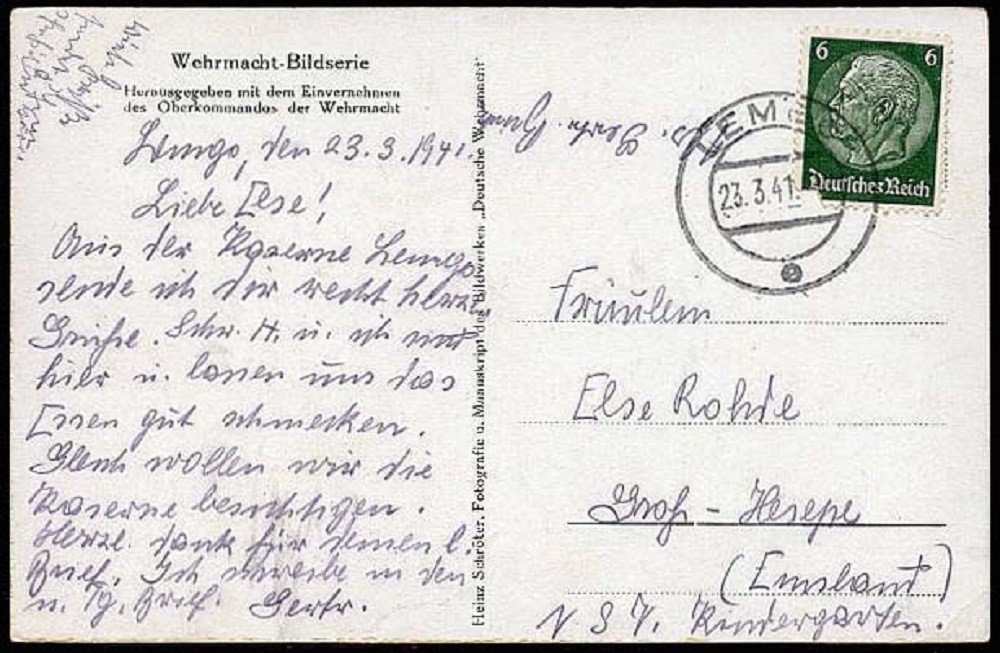 Wehrmacht-Bildserie
Herausgegeben mit dem Einvernehmen
des Oberkommandos der Wehrmacht
Lemgo, den 23.3.1941.
Liebe Else!
Aus der Kaserne Lemgo
sende ich dir recht herzl.
Grüße. Schw. H. u. ich sind
hier u. lassen uns das
Essen gut schmecken.
Gleich wollen wir die
Kaserne besichtigen.
Herzl. dank für deinen l.
Brief. Ich schreibe in den
n. Tg. Brief. Gertr.
Heinz Schröter. Fotografie u. Manuskript des Bildwerkes „Deutsche Wehrmacht"
6 6
Deutsches Reich
LEMGO
23.3.41.
Fräulein
Else Rohde
Groß-Hesepe
(Emsland)
N.S.V. Kindergarten.